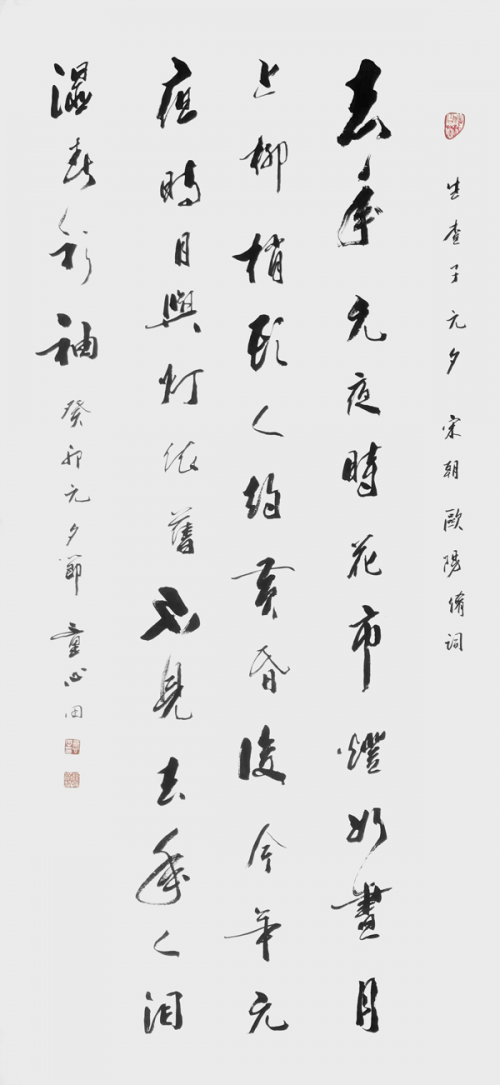 生查子元夕 宋朝歐陽脩詞
去年元夜時花市燈如晝月
上柳梢頭人約黃昏後今年元
夜時月與灯依舊不見去年人泪
濕春衫袖 癸卯元夕節 童心田